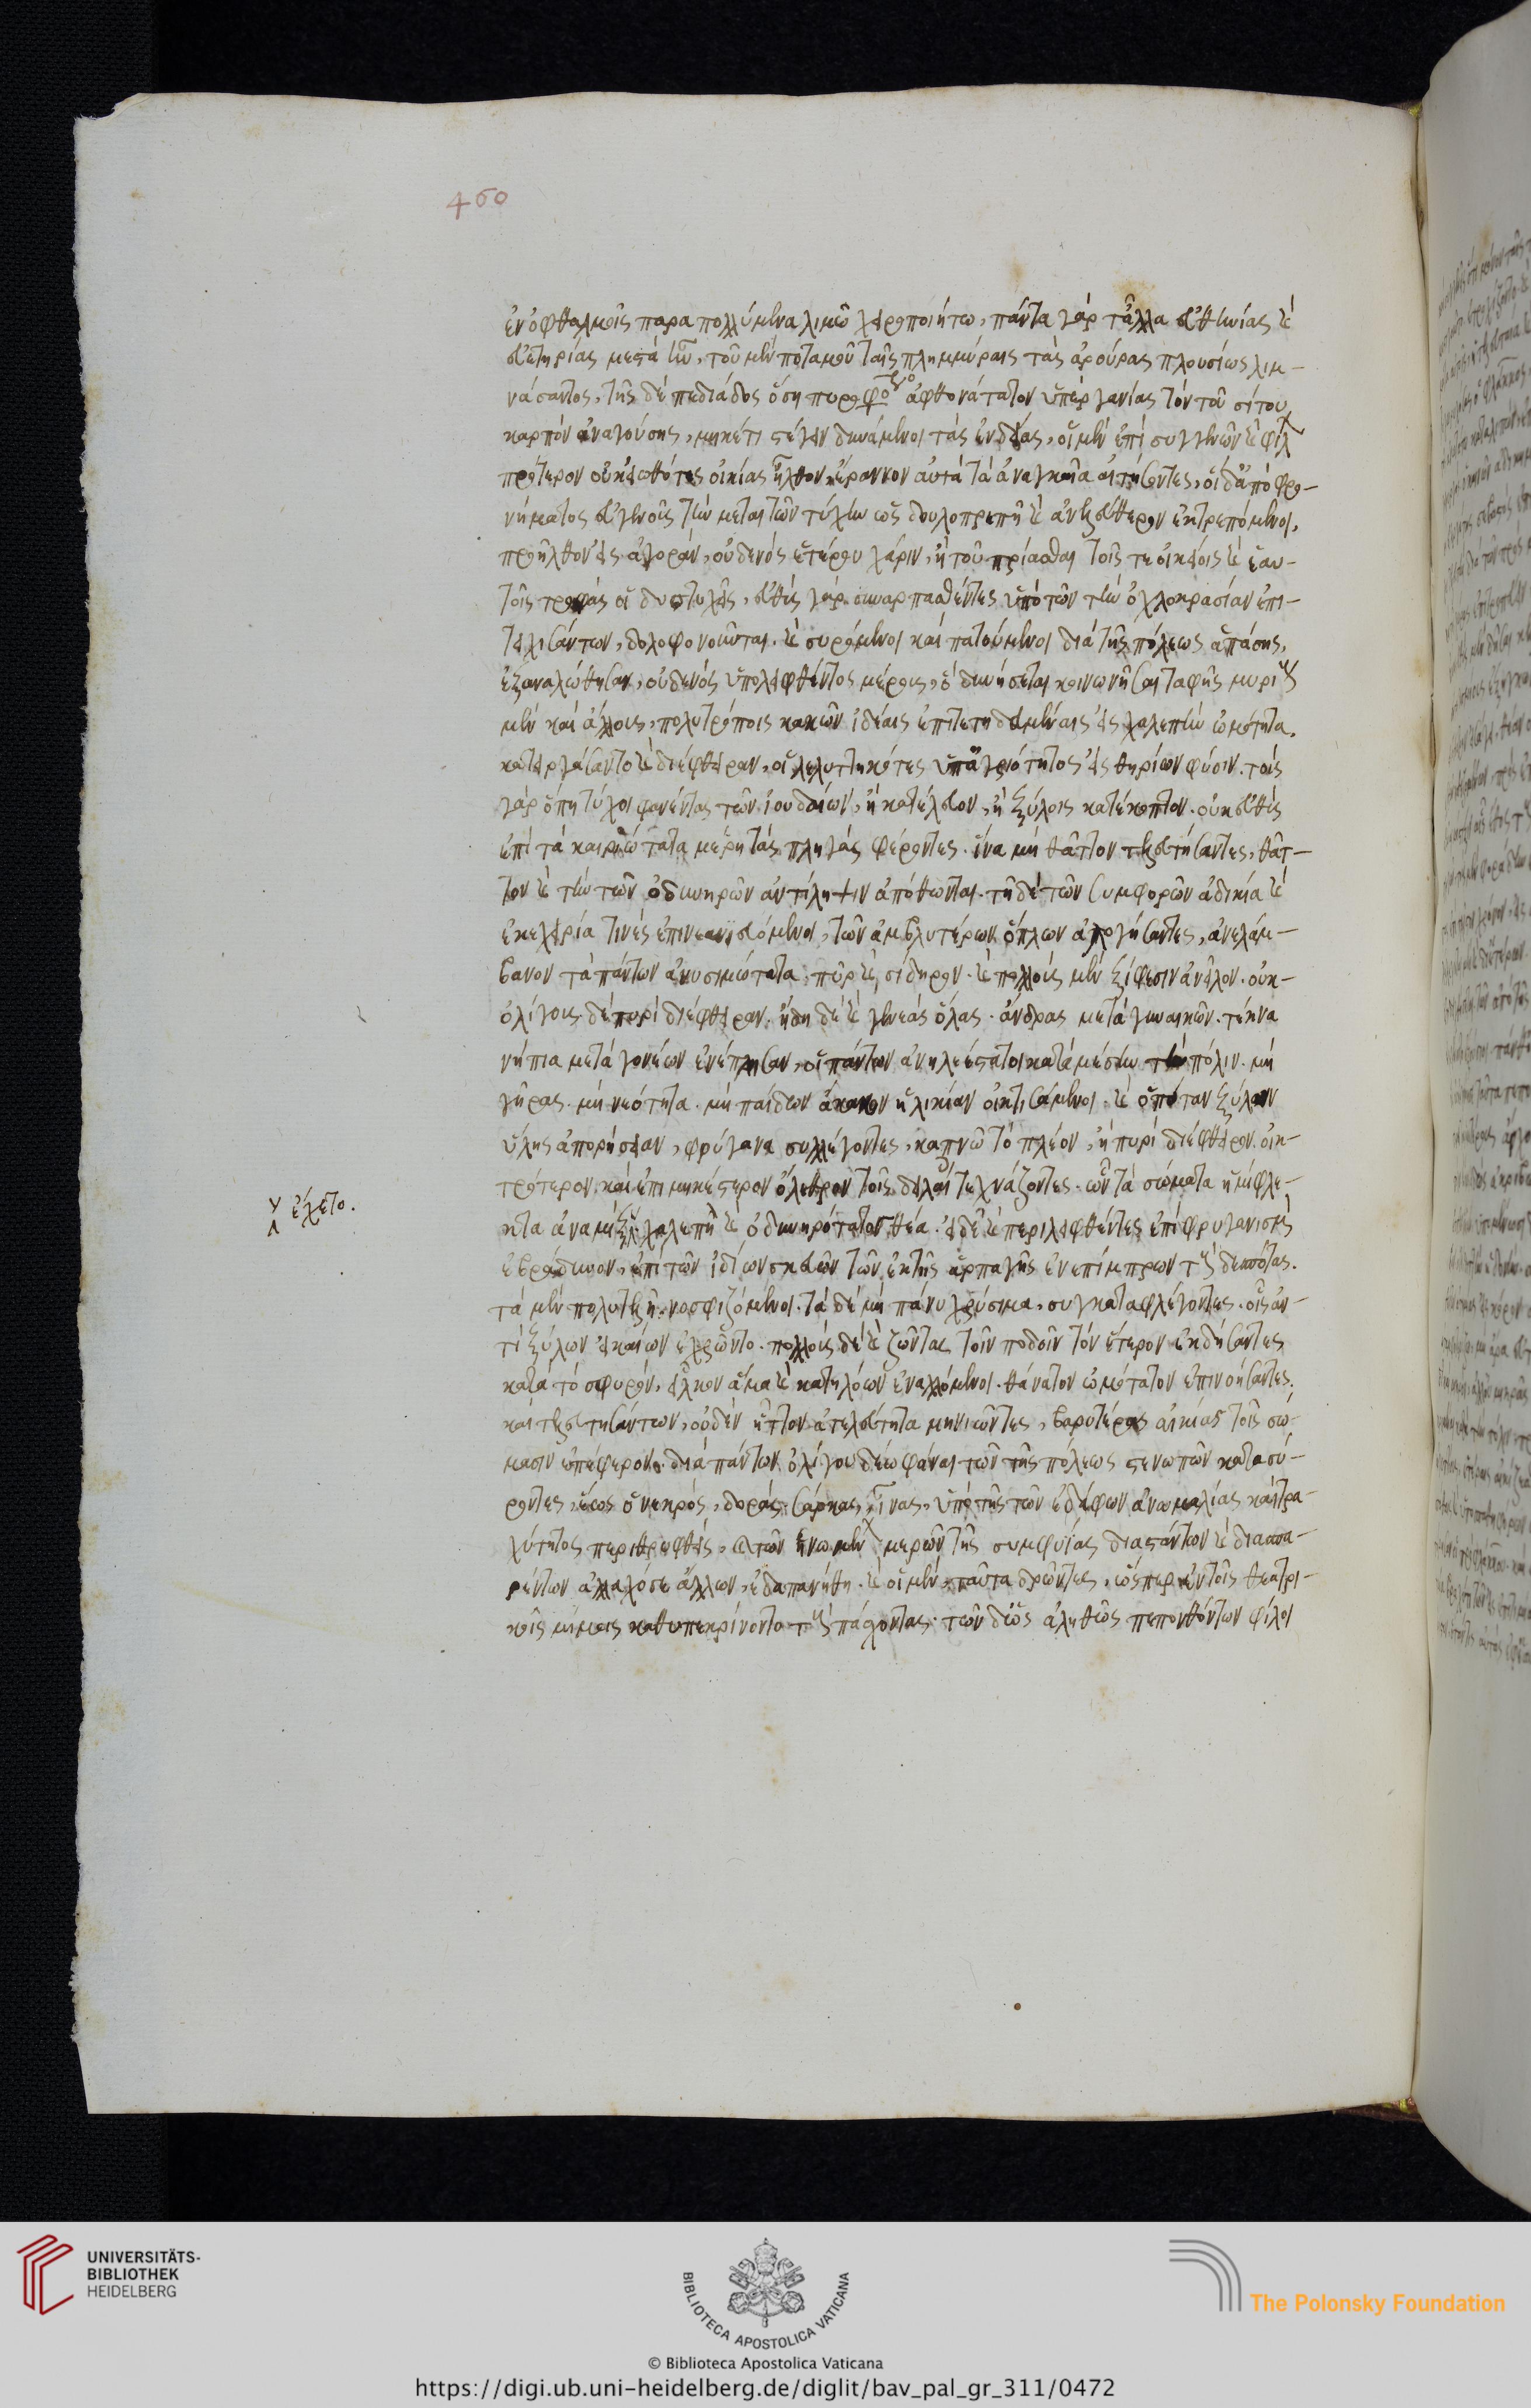 460
ἐν ὀφθαλμοῖς παραπολλύμενα λιμῶ χειροποιήτω, πάντα γὰρ τἄλλα εὐθηνίας καὶ
εὐετηρίας μεστὰ ἦν, τοῦ μὲν ποταμοῦ ταῖς πλημμύραις τὰς ἀρούρας πλουσίως λιμ-
νάσαντος, τῆς δὲ πεδιάδος ὅση πυροφόρος ἀφθονώτατον ὑπὲρ γονίας τὸν τοῦ σίτου
καρπὸν ἀναχούσης, μηκέτι στέγειν δυνάμενοι τὰς ἐνδείας, οἱ μὲν ἐπὶ συγγενῶν καὶ φίλ
πρότερον οὐκ εἰωθότες οἰκίας ἦλθον, ἔρανον αὐτὰ τὰ ἀναγκαῖα αἰτήσοντες, οἱ δ' ἀπὸ φρο-
νήματος εὐγενοῦς τὴν μεταιτῶν τύχην ὡς δουλοπρεπῆ καὶ ἀνελεύθερον ἐκτρεπόμενοι,
προῆλθον εἰς ἀγορὰν, οὐδενὸς ἑτέρου χάριν, ἢ τοῦ πρίασθαι τοῖς τε οἰκείοις καὶ ἑαυ-
τοῖς τροφὰς οἱ δυστυχεῖς, εὐθὺς γὰρ συναρπασθέντες ὑπὸ τῶν τὴν ὀχλοκρασίαν ἐπι-
τειχισάντων, δολοφονοῦνται. καὶ συρόμενοι καὶ πατούμενοι διὰ τῆς πόλεως ἁπάσης,
ἐξαναλώθησαν, οὐδενὸς ὑπολειφθέντος μέρους, ὃ δυνήσεται κοινωνῆσαι ταφῆς μυρίαις
μὲν καὶ ἄλλοις, πολυτρόποις κακῶν ἰδέαις ἐπιτετηδευμέναις εἰς χαλεπὴν ὠμότητα,
κατειργάσαντο καὶ διέφθειραν, οἱ λελυττηκότες ὑπ' ἀγριότητος εἰς θηρίων φύσιν. τοὺς
γὰρ ὅπη τύχοι φανέντας τῶν ἰουδαίων, ἢ κατέλευον, ἢ ξύλοις κατέκοπτον. οὐκ εὐθὺς
ἐπὶ τὰ καιριώτατα μέρη τὰς πληγὰς φέροντες. ἵνα μὴ θᾶττον τελευτήσαντες, θᾶτ-
τον καὶ τὴν τῶν ὀδυνηρῶν ἀντίληψιν ἀπόθωνται. τῇ δὲ τῶν συμφορῶν ἀδικία καὶ
ἐκεχειρία τινὲς ἐπινεανιευόμενοι, τῶν ἀμβλυτέρων ὅπλων ἀλογήσαντες, ἀνελάμ-
βανον τὰ πάντων ἀνυσιμώτατα πῦρ καὶ σίδηρον. καὶ πολλοὺς μὲν ξίφεσιν ἀνεῖλον. οὐκ
ὀλίγους δὲ πυρὶ διέφθειραν. ἤδη δὲ καὶ γενεὰς ὅλας. ἄνδρας μετὰ γυναικῶν. τέκνα
νήπια μετὰ γονέων ἐνέπρησαν, οἱ πάντων ἀνηλεέστατοι κατὰ μέσην τὴν πόλιν. μὴ
γῆρας. μὴ νεότητα. μὴ παίδων ἄκακον ἡλικίαν οἰκτισάμενοι. καὶ ὁπόταν ξύλων
ὕλης ἀπορήσειαν, φρύγανα συλλέγοντες, καπνῶ τὸ πλέον, ἢ πυρὶ διέφθειρον. οἰκ-
τρότερον καὶ ἐπιμηκέστερον ὄλεθρον τοῖς δειλαίοις τεχνάζοντες. ὧν τὰ σώματα ἡμίφλε-
κτα ἀναμὶξ χαλεπὴ καὶ ὀδυνηρότατον θέα. εἰ δὲ καὶ περιλειφθέντες ἐπὶ φρυγανισμὸν
ἐβράδυνον, ἐπὶ τῶν ἰδίων σκευῶν τῶν ἐκ τῆς ἁρπαγῆς ἐνεπίμπρων τοὺς δεσπότας.
τὰ μὲν πολυτελῆ νοσφιζόμενοι. τὰ δὲ μὴ πάνυ χρήσιμα, συγκαταφλέγοντες. οἷς ἀν-
τὶ ξύλων εἰκαίων ἐχρῶντο. πολλοὺς δὲ καὶ ζῶντας τοῖν ποδοῖν τὸν ἕτερον ἐκδήσαντες
κατὰ τὸ σφυρὸν, εἷλκον ἅμα καὶ κατηλόων ἐναλλόμενοι. θάνατον ὠμότατον ἐπινοήσαντες.
καὶ τελευτησάντων, οὐδὲν ἧττον ἀτελεύτητα μηνιῶντες, βαρυτέρας αἰκίας τοῖς σώ-
μασιν ἐπέφερον. διὰ πάντων ὀλίγου δέω φάναι τῶν τῆς πόλεως στενωπῶν κατασύ-
ροντες, ἕως ὁ νεκρὸς, δορὰς, σάρκας, ἶνας, ὑπὸ τῆς τῶν ἐδάφων ἀνωμαλίας καὶ τρα-
χύτητος περιθρυφθεὶς, καὶ τῶν ἡνωμένων μερῶν τῆς συμφυΐας διαστάντων καὶ διασπα-
ρέντων ἀλλαχόσε ἄλλων, ἐδαπανήθη. καὶ οἱ μὲν ταῦτα δρῶντες, ὥσπερ ἐν τοῖς θεατρι-
κοῖς μίμοις καθυπεκρίνοντο τοὺς πάσχοντας. τῶν δ' ὡς ἀληθῶς πεπονθότων φίλοι
ἐχετο.
UNIVERSITÄTS-
BIBLIOTHEK
HEIDELBERG
BIBLIOTECA APOSTOLICA VATICANA
The Polonsky Foundation
© Biblioteca Apostolica Vaticana
https://digi.ub.uni-heidelberg.de/diglit/bav_pal_gr_311/0472